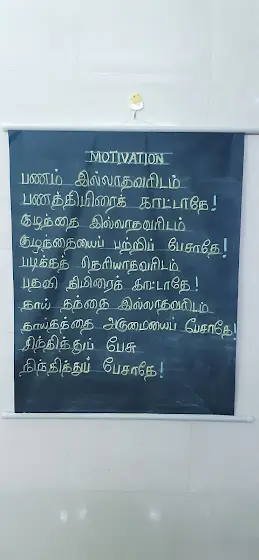 MOTIVATION
பணம் இல்லாதவரிடம்
பணத்திமிரைக் காட்டாதே!
குழந்தை இல்லாதவரிடம்
குழந்தையைப் பற்றிப் பேசாதே!
படிக்கத் தெரியாதவரிடம்
புதவி திமிரைக் காட்டாதே!
தாய் தந்தை இல்லாதவரிடம்
தாய்தந்தை அருமையைப் பேசாதே!
சிந்தித்துப் பேசு
நிந்தித்துப் பேசாதே!